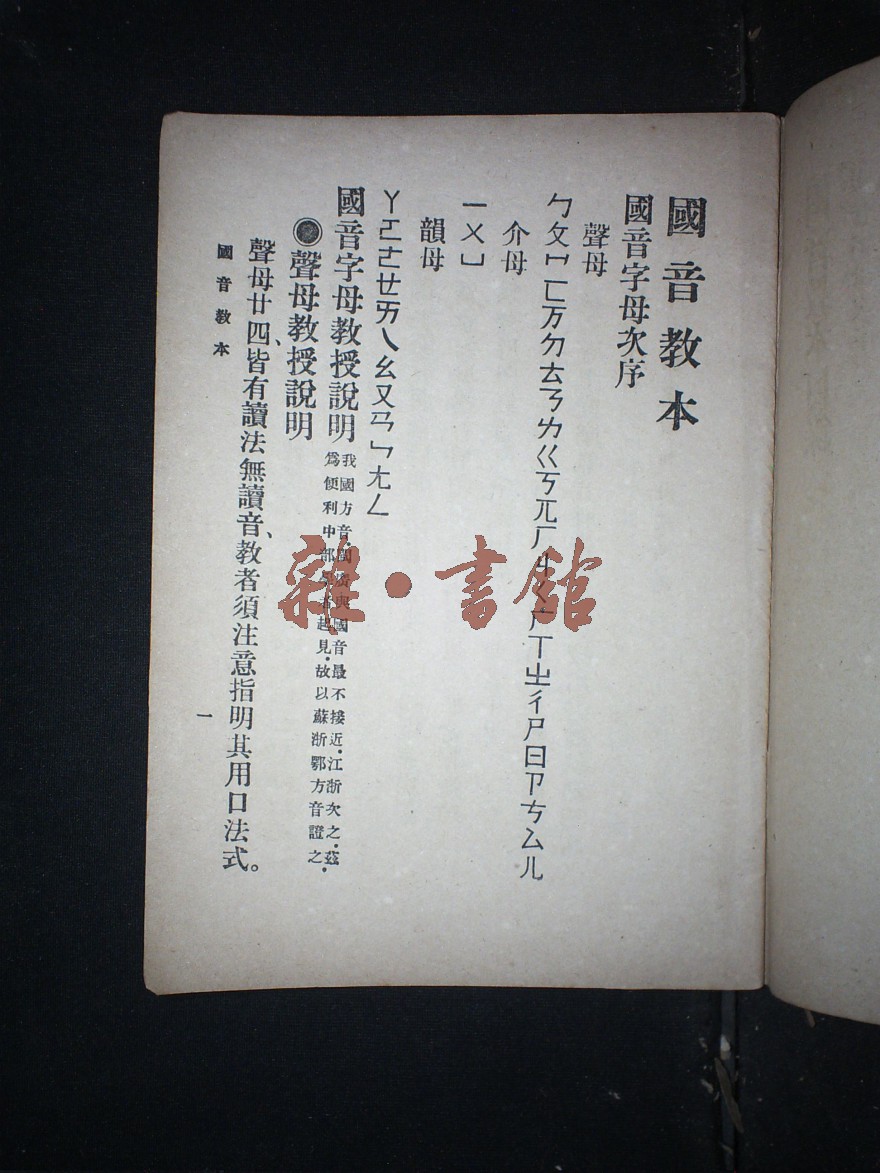 國音教本
國音字母次序
聲母
ㄅㄆㄇㄈㄪㄉㄊㄋㄌㄍㄎㄫㄏㄐㄑㄬㄒㄓㄔㄕㄖㄗㄘㄙㄦ
介母
ㄧㄨㄩ
韻母
ㄚㄛㄜㄝㄞㄟㄠㄡㄢㄣㄤㄥ
國音字母教授說明
我國方音．閩廣與國音最不接近．江浙次之．茲
爲便利中部學者起見．故以蘇浙鄂方音證之．
◉聲母教授說明
聲母廿四、皆有讀法無讀音、教者須注意指明其用口法式。
國音教本
一
雜·書館